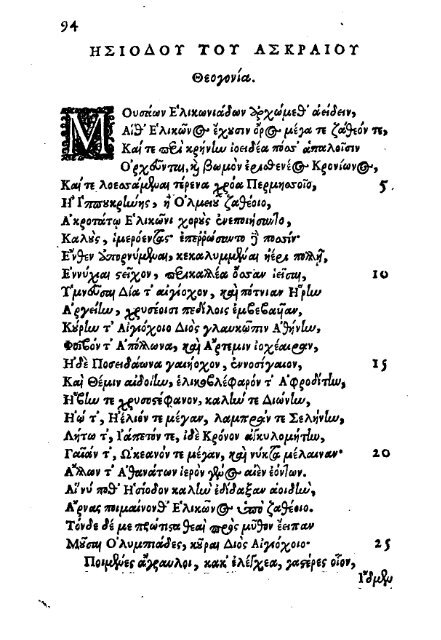 94
ΗΣΙΟΔΟΥ ΤΟΥ ΑΣΚΡΑΙΟΥ
Θεογονία.
ΜΟυσάων Ἑλικωνιάδων ἀρχώμεθ' ἀείδειν,
Αἵθ' Ἑλικῶνος ἔχουσιν ὄρος μέγα τε ζάθεόν τε,
Καί τε περὶ κρήνην ἰοειδέα πόσσ' ἁπαλοῖσιν
Ὀρχοῦνται, καὶ βωμὸν ἐρισθενέος Κρονίωνος,
Καί τε λοεσσάμεναι τέρενα χρόα Περμησσοῖο, 5
Ἢ Ἱπποκρήνης, ἢ Ὀλμειοῦ ζαθέοιο,
Ἀκροτάτῳ Ἑλικῶνι χοροὺς ἐνεποιήσαντο,
Καλοὺς, ἱμερόεντας· ἐπερρώσαντο δὲ ποσσίν·
Ἔνθεν ἀπορνύμεναι, κεκαλυμμέναι ἠέρι πολλῇ,
Ἐννύχιαι στεῖχον, περικαλλέα ὄσσαν ἱεῖσαι, 10
Ὑμνοῦσαι Δία τ' αἰγίοχον, καὶ πότνιαν Ἥρην
Ἀργείην, χρυσέοισι πεδίλοις ἐμβεβαυῖαν,
Κούρην τ' Αἰγιόχοιο Διὸς γλαυκῶπιν Ἀθήνην,
Φοῖβόν τ' Ἀπόλλωνα, καὶ Ἄρτεμιν ἰοχέαιραν,
Ἠδὲ Ποσειδάωνα γαιήοχον, ἐννοσίγαιον, 15
Καὶ Θέμιν αἰδοίην, ἑλικοβλέφαρόν τ' Ἀφροδίτην,
Ἥβην τε χρυσοστέφανον, καλήν τε Διώνην,
Ἠῶ τ', Ἠέλιόν τε μέγαν, λαμπράν τε Σελήνην,
Λητώ τ', Ἰαπετόν τε, ἰδὲ Κρόνον ἀγκυλομήτην,
Γαῖάν τ', Ὠκεανόν τε μέγαν, καὶ νύκτα μέλαιναν· 20
Ἄλλων τ' Ἀθανάτων ἱερὸν γένος αἰὲν ἐόντων.
Αἵ νύ ποθ' Ἡσίοδον καλὴν ἐδίδαξαν ἀοιδὴν,
Ἄρνας ποιμαίνονθ' Ἑλικῶνος ὑπὸ ζαθέοιο.
Τόνδε δέ με πρώτιστα θεαὶ πρὸς μῦθον ἔειπαν
Μοῦσαι Ὀλυμπιάδες, κοῦραι Διὸς Αἰγιόχοιο· 25
Ποιμένες ἄγραυλοι, κακ' ἐλέγχεα, γαστέρες οἶον,
Ἴδμεν